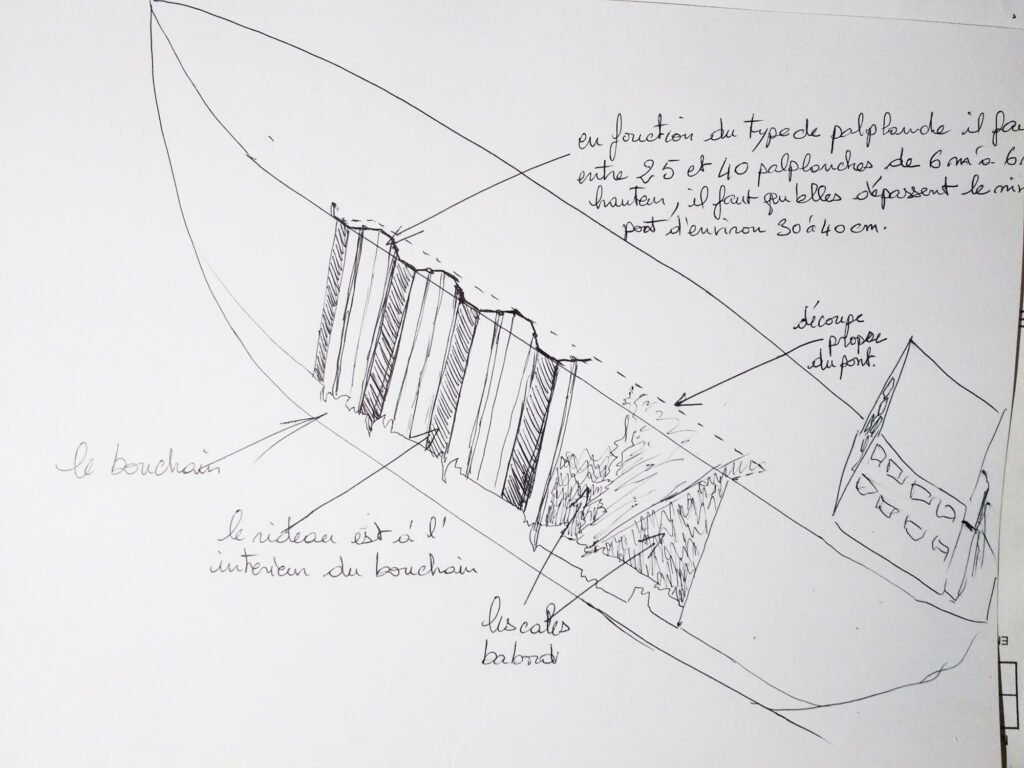 en fonction du type de palplanche il fau
entre 25 et 40 palplanches de 6 m à 6
hauteur, il faut qu'elles dépassent le ni
pont d'environ 30 à 40 cm.
découpe
propre
du pont.
le bouchain
le rideau est à l'
intérieur du bouchain
les cales
babord